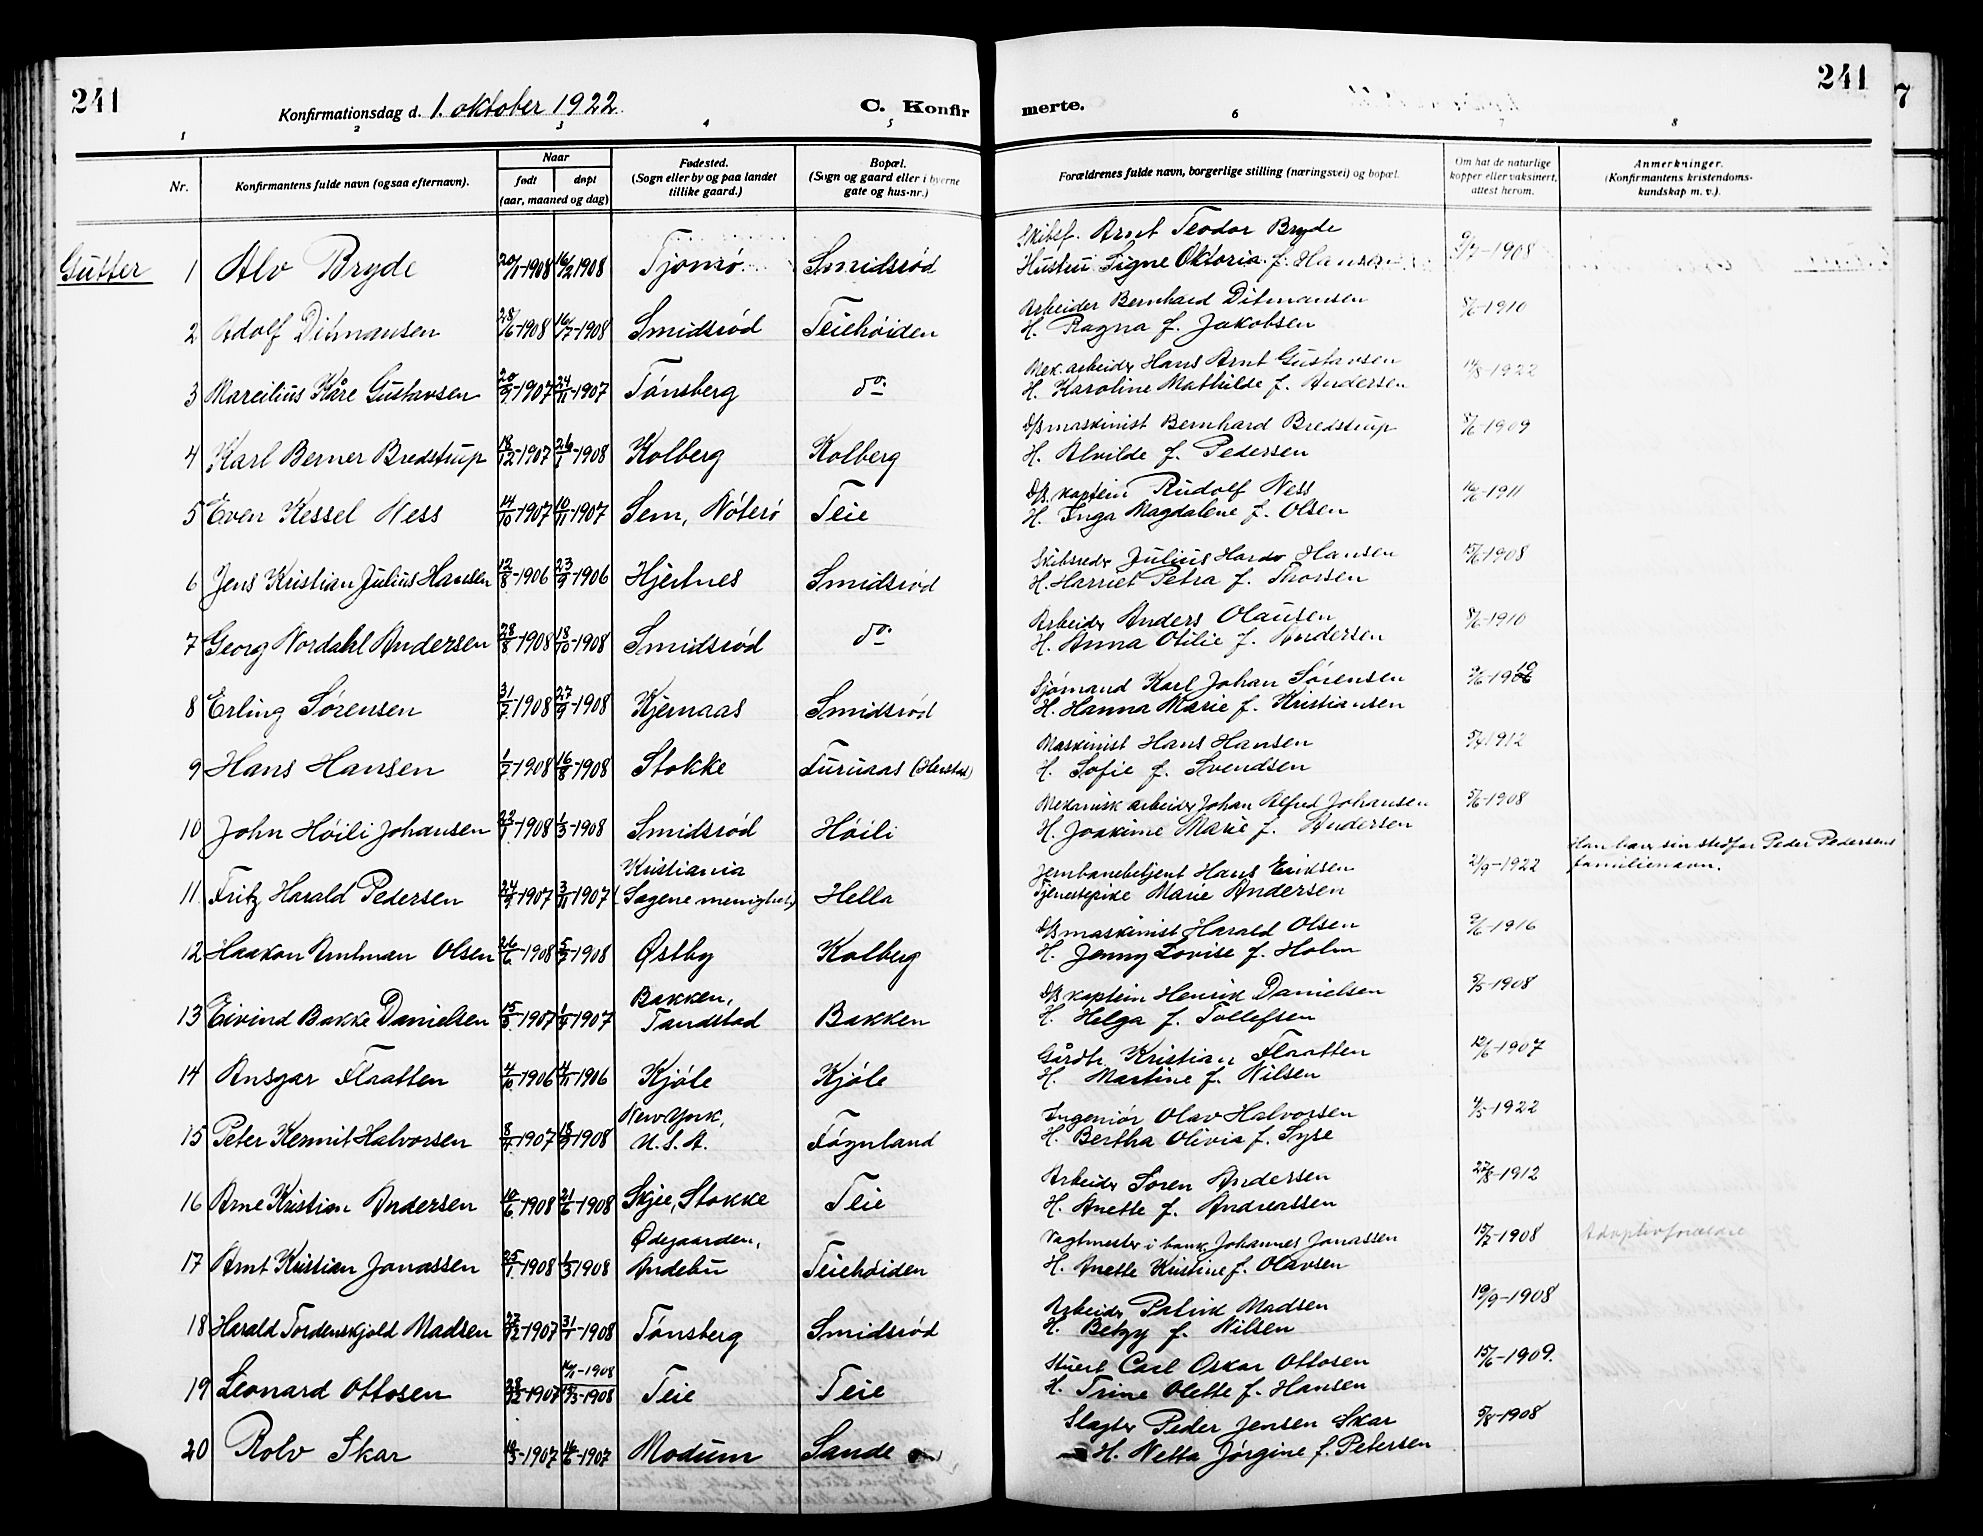 241
Konfirmationsdag d. 1. oktober 1922.
C. Konfir
merte.
241
7
1 2 3 4 5 6 7 8
Nr.
Konfirmantens fulde navn (ogsaa efternavn).
Naar
født døpt
(aar, maaned og dag)
Fødested.
(Sogn eller by og paa landet
tillike gaard.)
Bopæl.
(Sogn og gaard eller i byerne
gate og hus-nr.)
Forældrenes fulde navn, borgerlige stilling (næringsvei) og bopæl.
Om hat de naturlige
kopper eller vaksinert,
attest herom.
Anmerkninger.
(Konfirmantens kristendoms-
kundskap m. v.).
Gutter
Skibsf. Arnt Teodor Bryde
1 Alv Bryde 20/1-1908 16/2 1908 Tjømø Smidsrød Hustru Signe Oktoria f. Hansen 9/7-1908
Arbeider Bernhard Ditmansen
2 Adolf Ditmansen 28/6-1908 16/7-1908 Smidsrød Teiehøiden H. Ragna f. Jakobsen 8/6-1910
Mek. arbeider Hans Arnt Gustavsen
3 Marcilius Kåre Gustavsen 20/9-1907 24/11-1907 Tønsberg do H. Karoline Mathilde f. Andersen 14/8-1922
D/S maskinist Bernhard Bredstrup
4 Karl Berner Bredstrup 18/12-1907 26/1-1908 Kolberg Kolberg H. Alvilde f. Pedersen 8/6-1909
D/S. kaptein Rudolf Ness
5 Even Kessel Ness 14/10-1907 10/11-1907 Sem, Nøterø Teie H. Inga Magdalene f. Olsen 16/6-1911
Skibsreder Julius Hardo Hansen
6 Jens Kristian Julius Hansen 12/8-1906 23/9-1906 Hjertnes Smidsrød H. Harriet Petra f. Thorsen 15/6-1908
Arbeider Anders Olausen
7 Georg Nordahl Andersen 28/8-1908 18/10-1908 Smidsrød do H. Anna Otilie f. Andersen 8/6-1910
Sjømand Karl Johan Sørensen
8 Erling Sørensen 31/7-1908 27/9-1908 Kjernaas Smidsrød H. Hanna Marie f. Kristiansen
Maskinist Hans Hansen
9 Hans Hansen 1/7-1908 16/8-1908 Stokke Furuaas H. Sofie f. Svendsen 5/7 1912
Mekanisk arbeider Johan Alfred Johansen
10 John Høili Johansen 22/1-1908 1/3-1908 Smidsrød Høili H. Joakime Marie f. Andersen 5/6-1908
Kristiania Jernbanebetjent Hans Eriksen 21/9-1922 Han bærer sin stedfar Peder Pedersens
familienavn.
11 Fritz Harald Pedersen 24/9-1907 3/11-1907 (Sagene menighet) Hella Tjenestepike Marie Andersen
D/S maskinist Harald Olsen
12 Haakon Amtman Olsen 26/6-1908 5/7-1908 Østby Kolberg H. Jenny Lovise f. Holm 9/6-1916
Bakken, D/S kaptein Henrik Danielsen
13 Eivind Bakke Danielsen 1907 1907 Tandstad Bakken H. Helga f. Tollefsen 5/5-1908
Gårdbr. Kristian Flaatten
14 Ansgar Flaatten 4/10-1906 4/11-1906 Kjøle Kjøle H. Martine f. Nilsen 12/6-1907
New York, Ingeniør Olav Halvorsen
15 Peter Kermit Halvorsen 1907 1908 U.S.A. Føynland H. Bertha Olivia f. Syse 4/5-1922
Arbeider Søren Andersen
16 Arne Kristian Andersen 10/6-1908 21/6-1908 Skjee, Stokke Teie H. Anette f. Andreassen 22/8-1912
Ødegaarden, Vagtmester i bank Johannes Jonassen
17 Arnt Kristian Jonassen 25/1-1908 1/3 1908 Andebu Teiehøiden H. Anette Kristine f. Olavsen 15/7-1908 Adoptivforældre
Arbeider Patrik Madsen
18 Harald Tordenskjold Madsen 22/12-1907 31/1-1908 Tønsberg Smidsrød H. Betzy f. Nilsen 19/9-1908
16/1-1908 Stuert Carl Oskar Ottosen
19 Leonard Ottosen 28/12-1907 15/3-1908 Teie Teie H. Trine Olette f. Hansen 15/6-1909.
Slagter Peder Jensen Skar
20 Rolv Skar 1907 1907 Modum Sande H. Netta Jørgine f. Petersen 5/8-1908